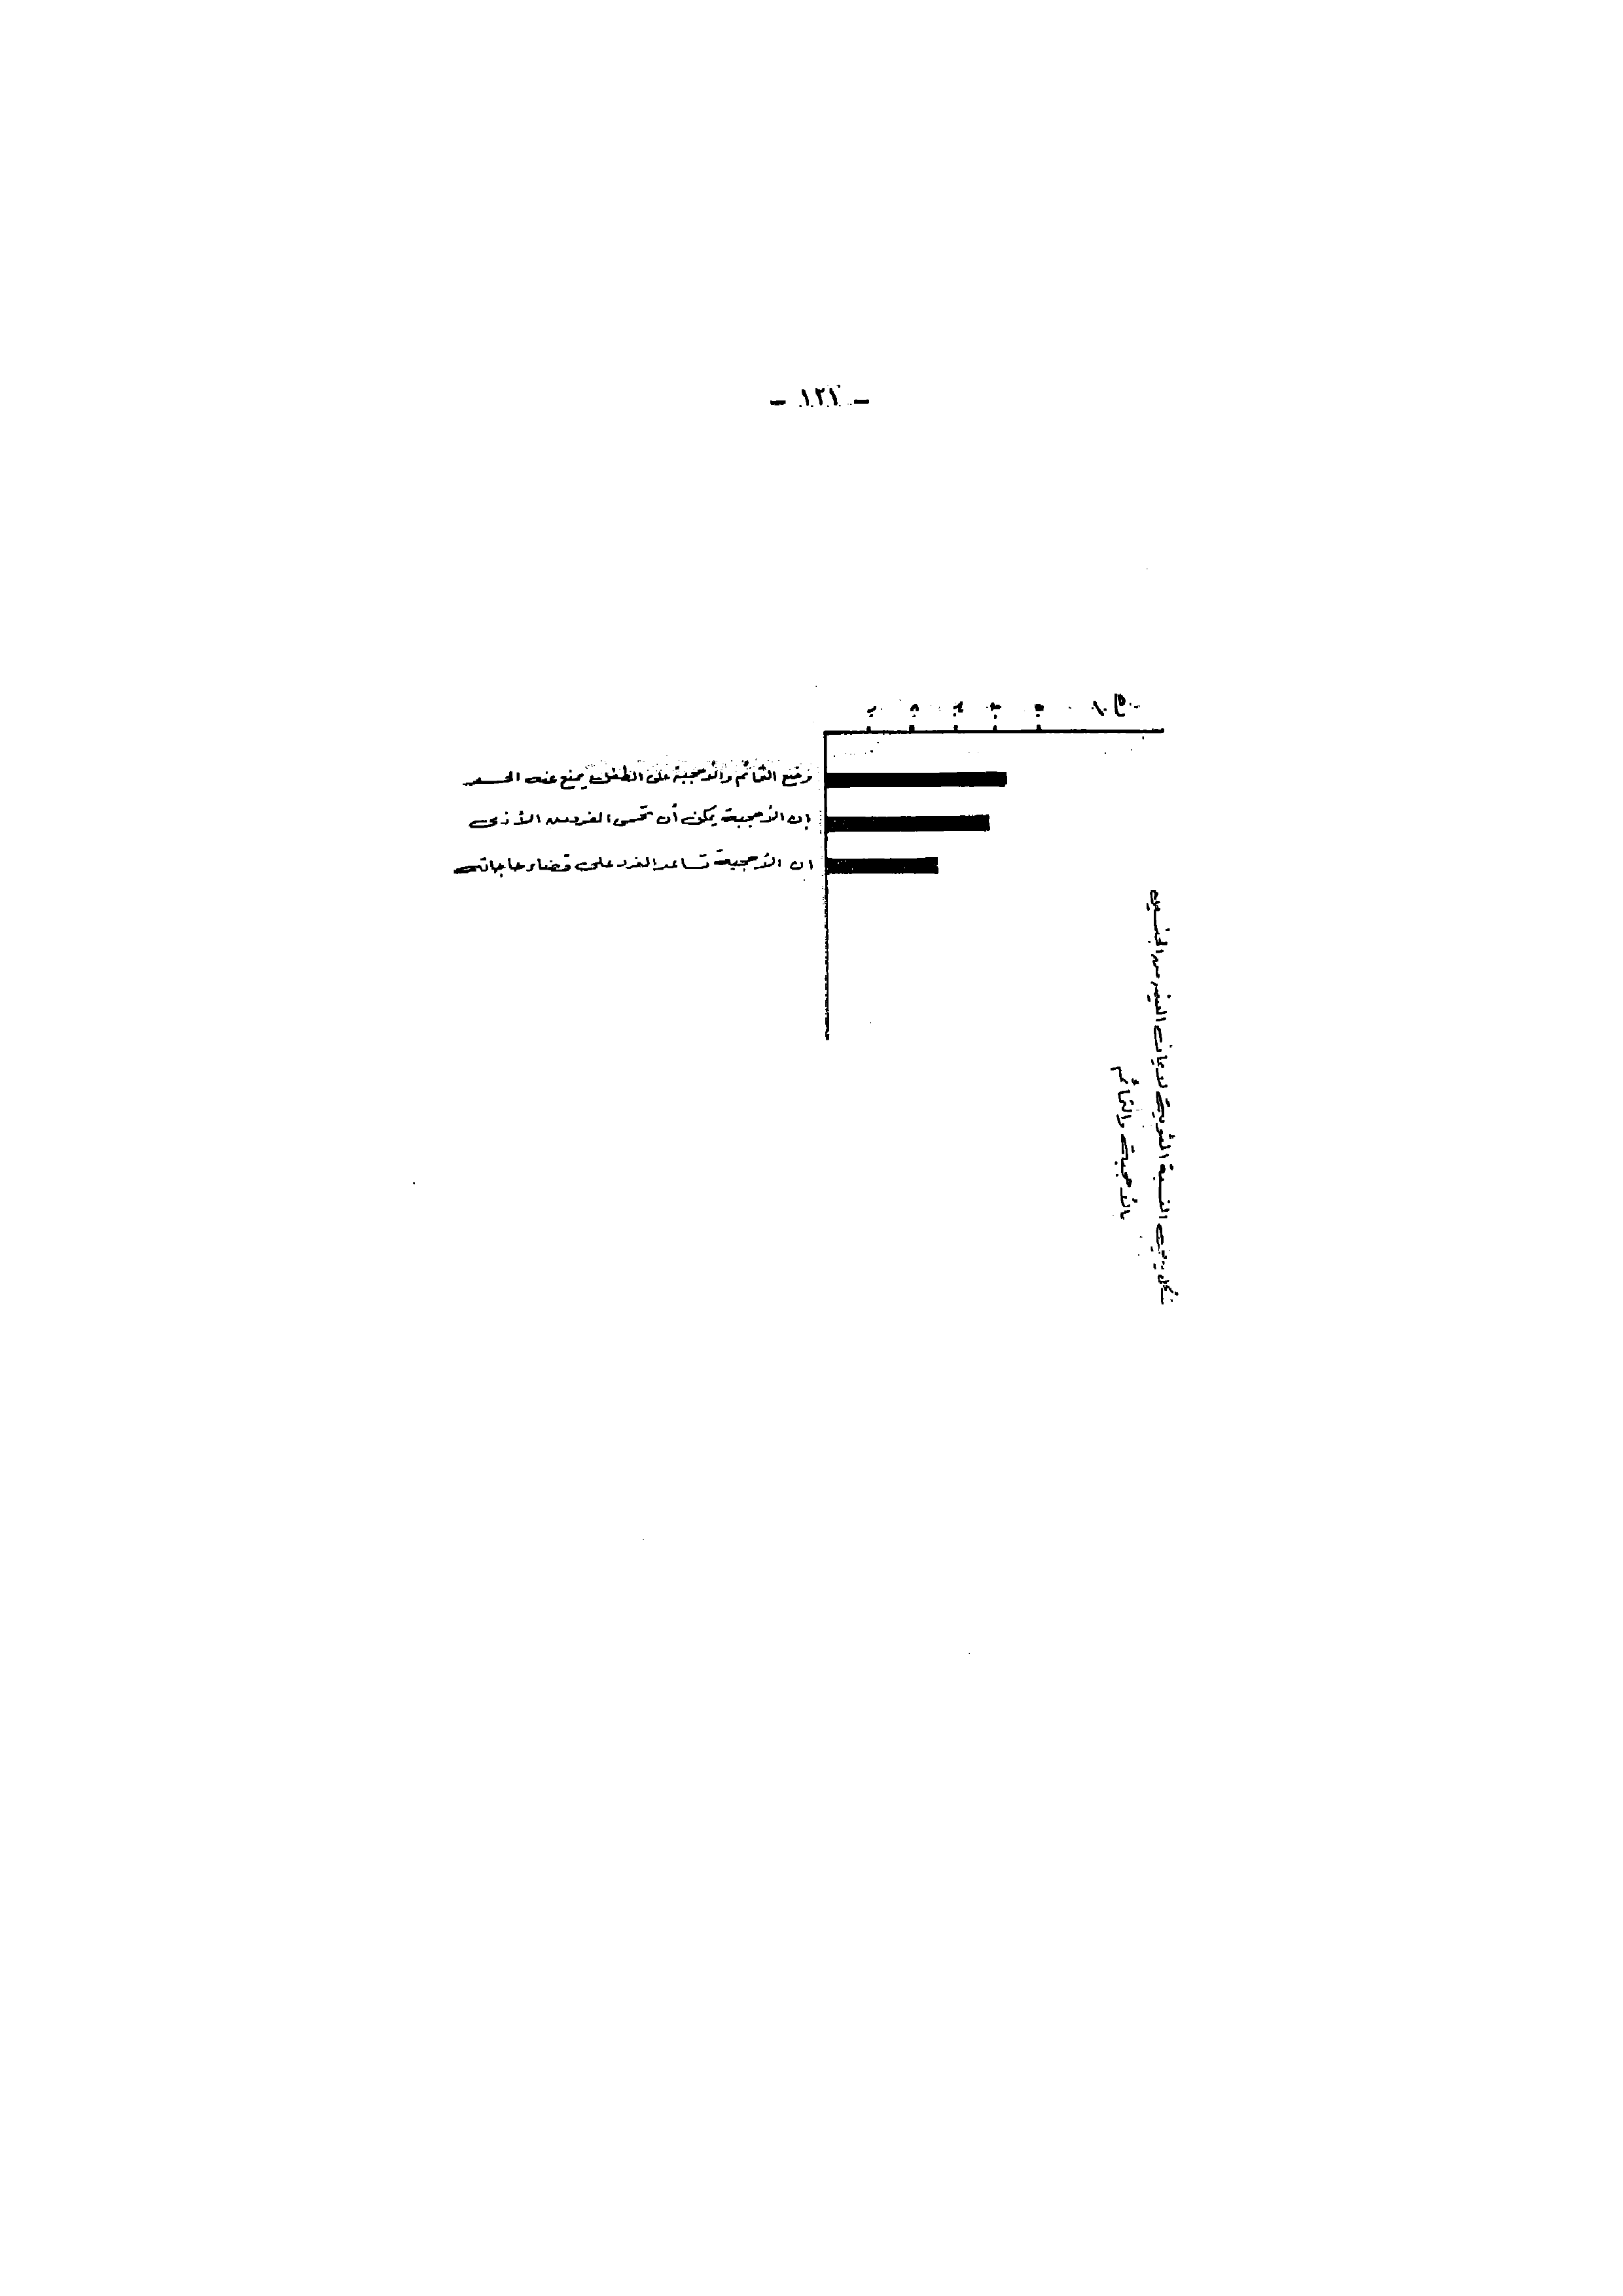 - ١٢١ -
وضع التمائم والأحجبة على الطفل يمنع عنه الحسد
إن الأحجبة يمكن أن تحمى الفرد من الأذى
ان الأحجبة تساعد الفرد على قضاء حاجاته
شكل يوضح النسبة المئوية لايمان العينة من الجنسين
بالأحجبة والتمائم